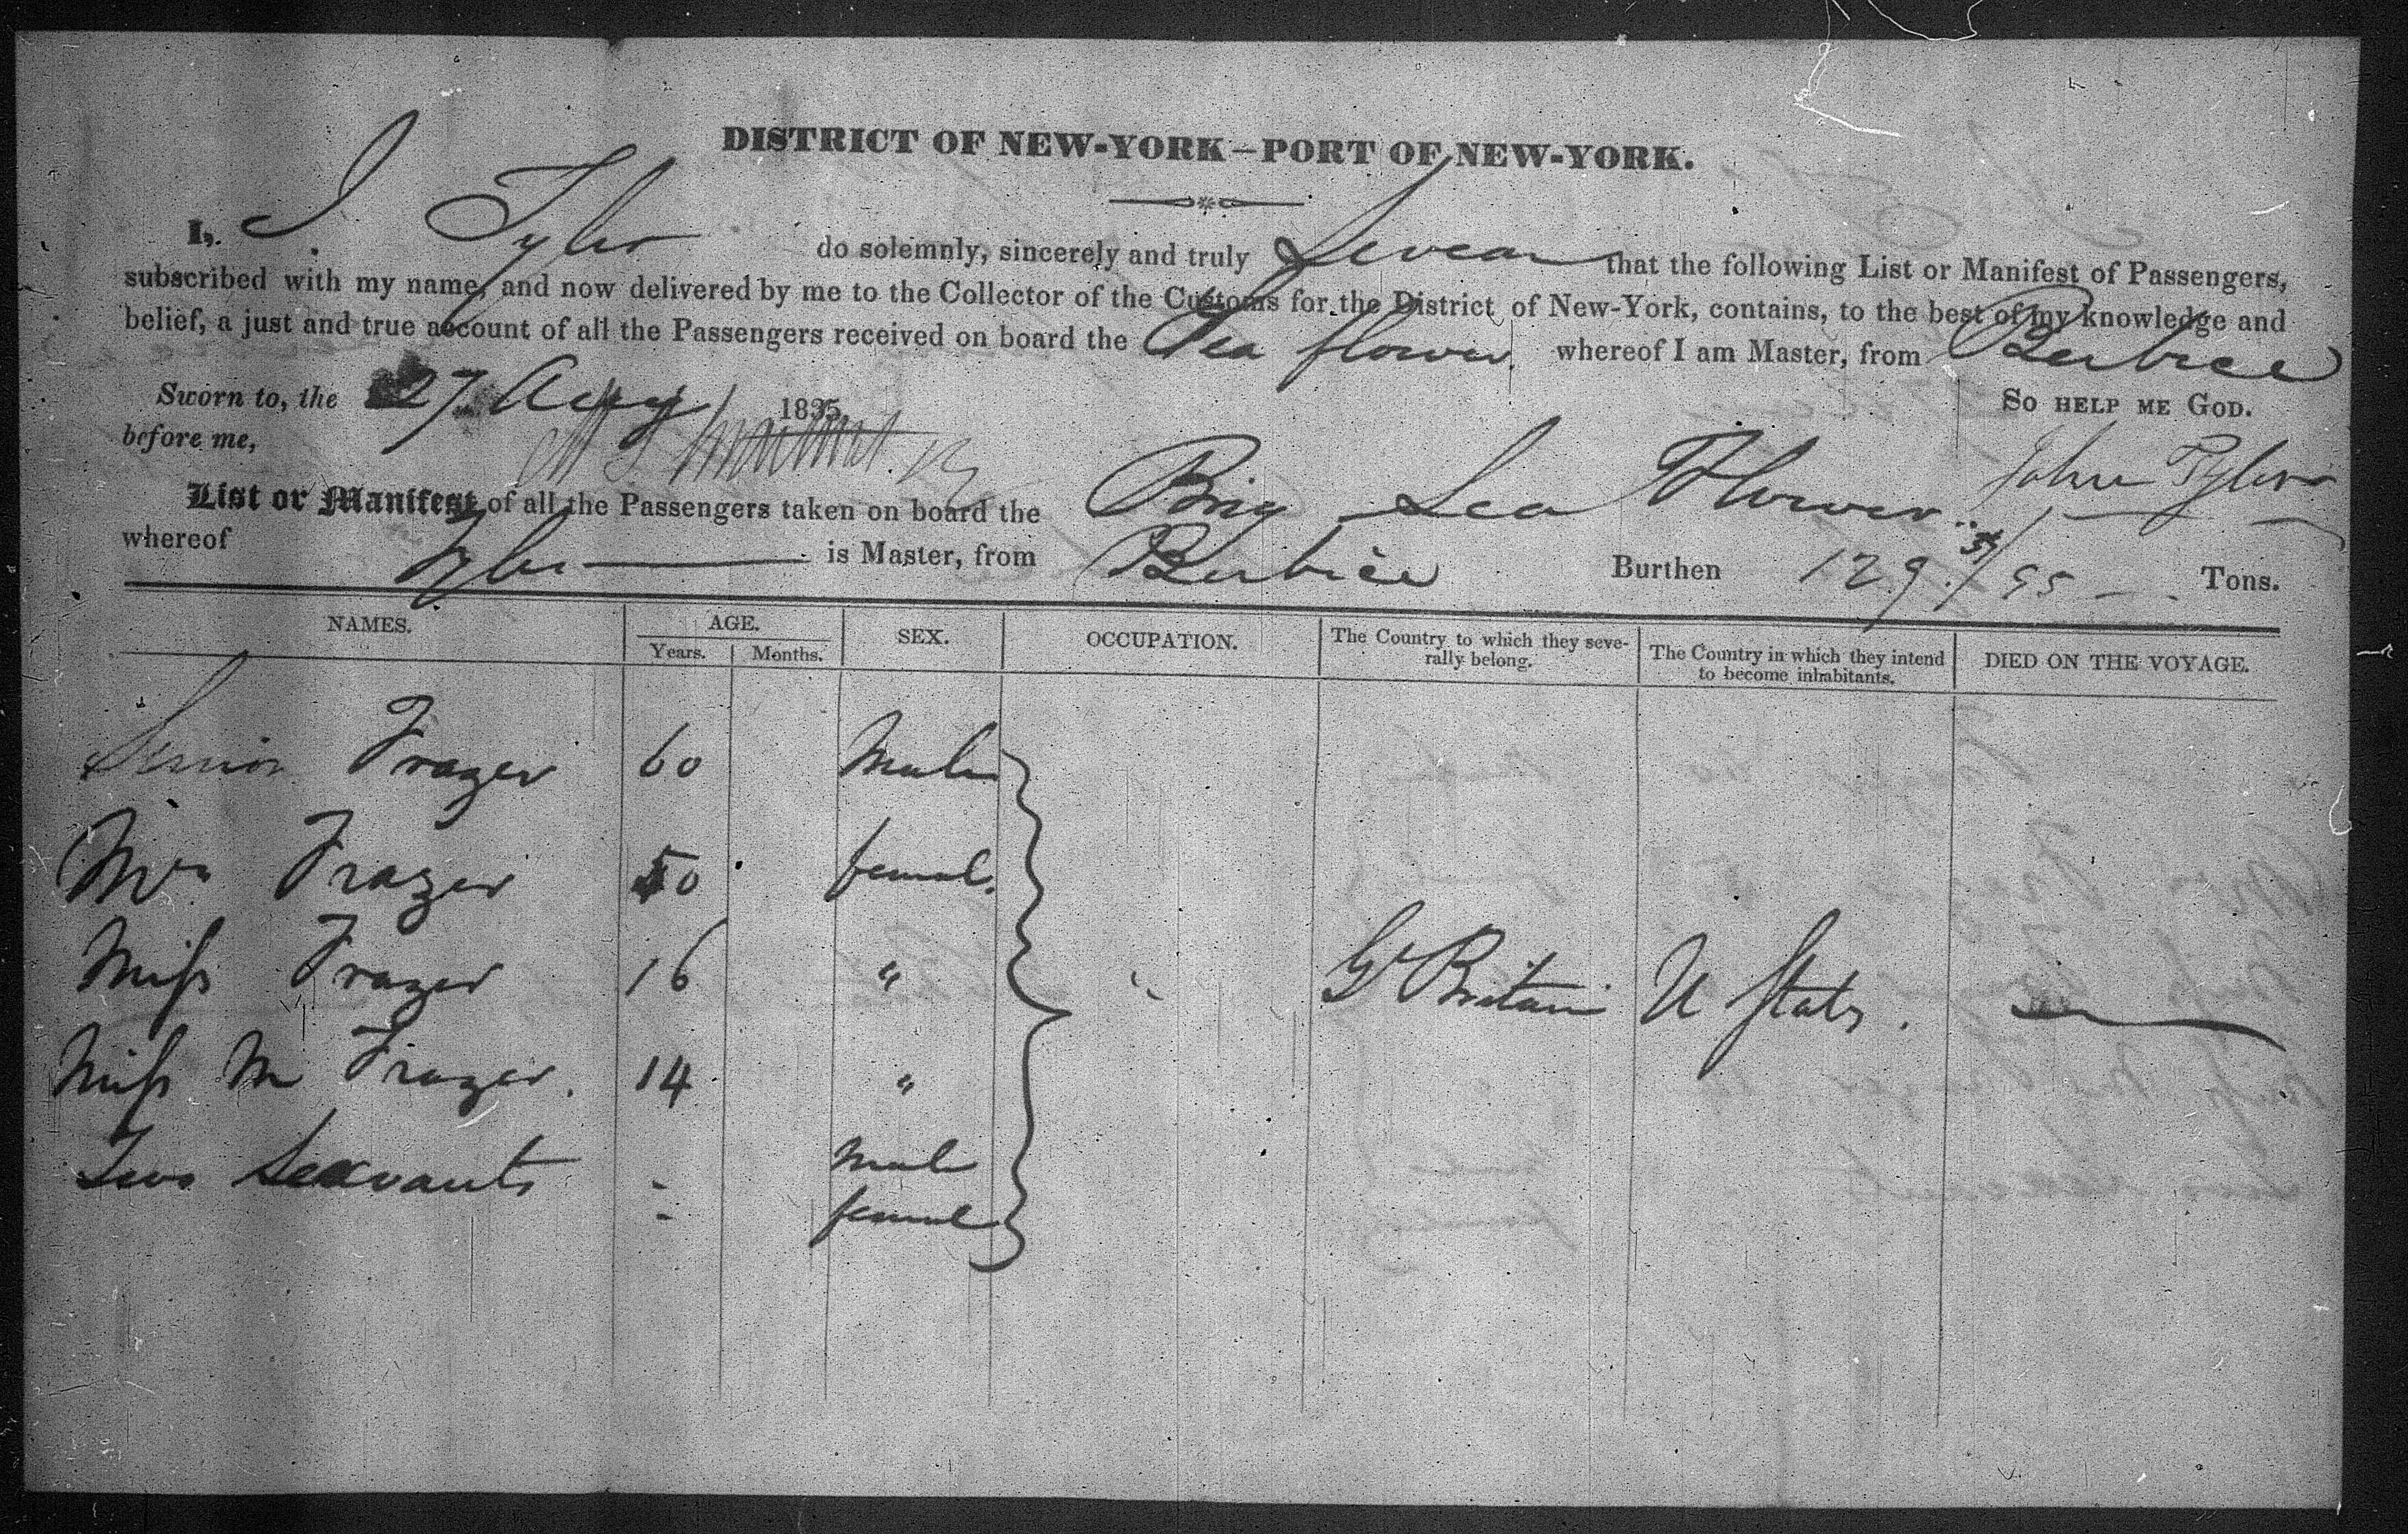 DISTRICT OF NEW-YORK—PORT OF NEW-YORK.
I, J. Tyler do solemnly, sincerely and truly Swear that the following List or Manifest of Passengers,
subscribed with my name, and now delivered by me to the Collector of the Customs for the District of New-York, contains, to the best of my knowledge and
belief, a just and true account of all the Passengers received on board the Sea flower whereof I am Master, from Berbice
Sworn to, the 27 Aug 1835 So HELP ME GOD.
before me,
John Tyler
List or Manifest of all the Passengers taken on board the Brig Sea Flower
whereof Tyler is Master, from Berbice Burthen 129 /95 Tons.
NAMES. AGE. SEX. OCCUPATION. The Country to which they seve- The Country in which they intend DIED ON THE VOYAGE.
Years. Months. rally belong. to become inhabitants.
Senior Frazer 60 Male
Mrs Frazer 50 femal.
Miss Frazer 16 " Gt Britain U States.
Miss M Frazer. 14 "
Two Servants - Male
- female